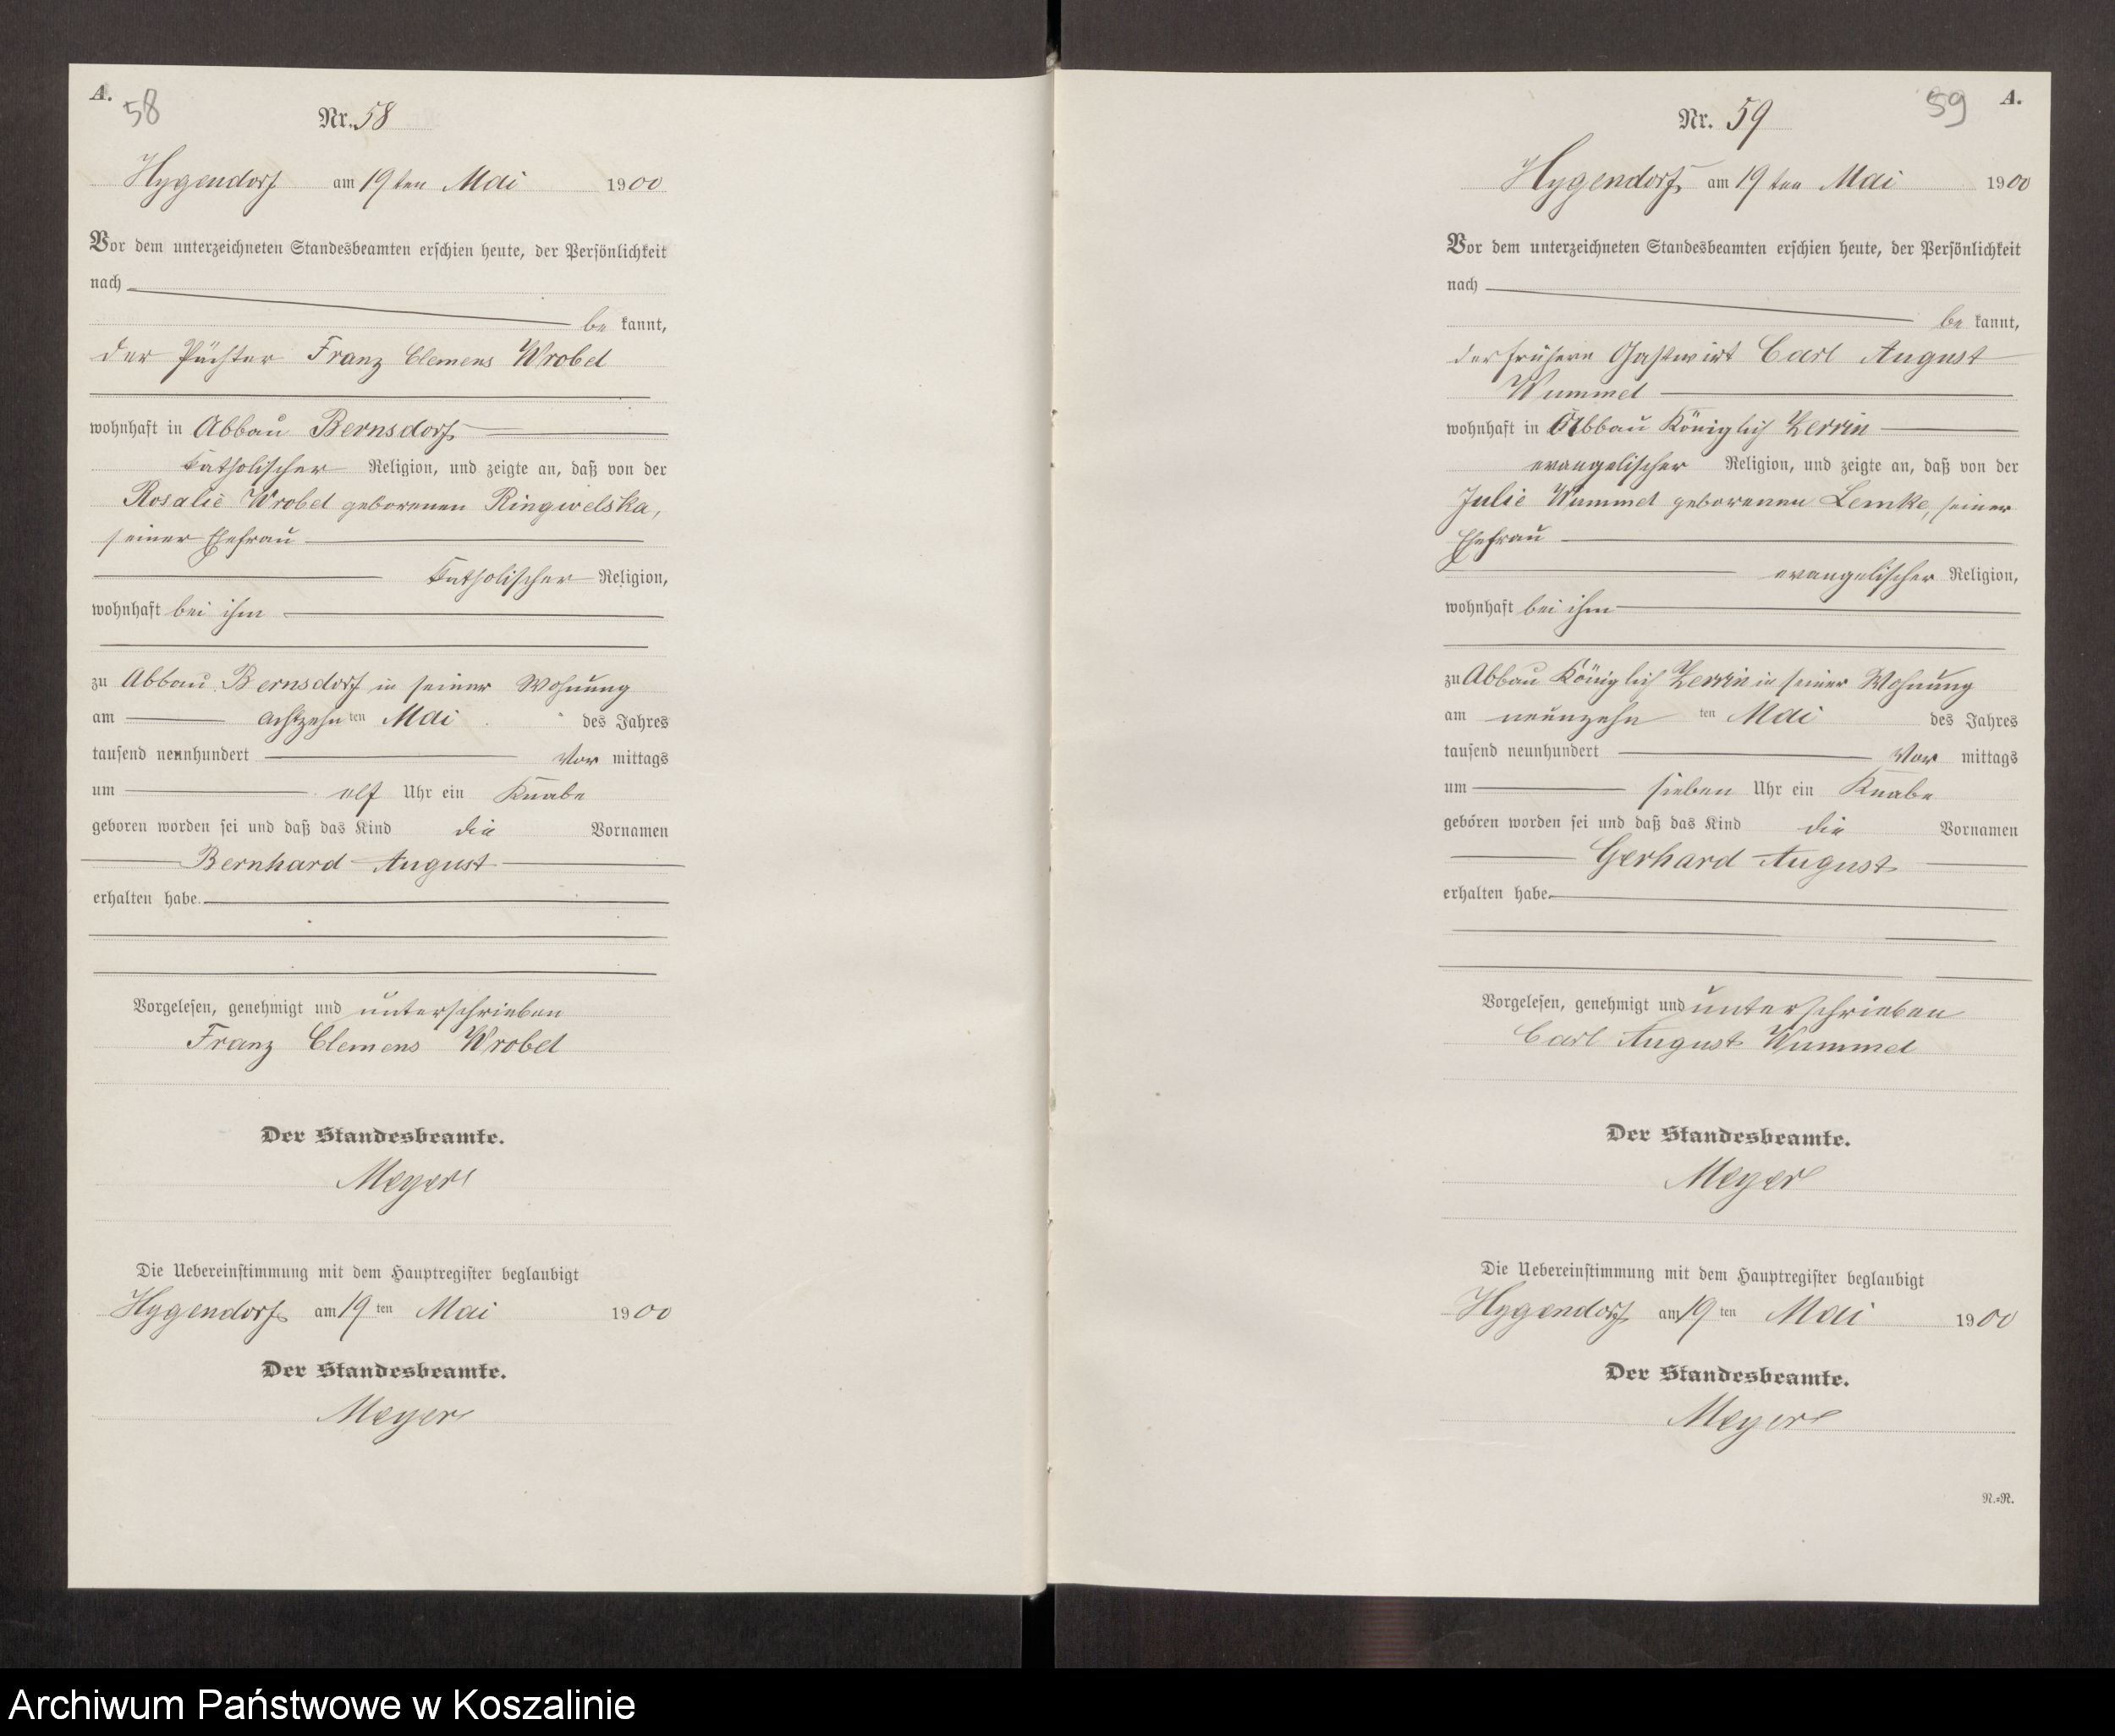 A.
58
Nr. 58
Hygendorf am 19ten Mai 1900
Vor dem unterzeichneten Standesbeamten erschien heute, der Persönlichkeit
nach
be kannt,
der Pächter Franz Clemens Wrobel
wohnhaft in Abbau Bernsdorf
katholischer Religion, und zeigte an, daß von der
Rosalie Wrobel geborenen Ringwelska,
seiner Ehefrau
katholischer Religion,
wohnhaft bei ihm
zu Abbau Bernsdorf in seiner Wohnung
am achtzehn ten Mai des Jahres
tausend neunhundert Vor mittags
um elf Uhr ein Knabe
geboren worden sei und daß das Kind die Vornamen
Bernhard August
erhalten habe.
Vorgelesen, genehmigt und unterschrieben
Franz Clemens Wrobel
Der Standesbeamte.
Meyer
Die Uebereinstimmung mit dem Hauptregister beglaubigt
Hygendorf am 19 ten Mai 1900
Der Standesbeamte.
Meyer
59 A.
Nr. 59
Hygendorf am 19 ten Mai 1900
Vor dem unterzeichneten Standesbeamten erschien heute, der Persönlichkeit
nach
be kannt,
der frühere Gastwirt Carl August
Wummel
wohnhaft in Abbau Königlich Zerrin
evangelischer Religion, und zeigte an, daß von der
Julie Wummel geborenen Lemke, seiner
Ehefrau
evangelischer Religion,
wohnhaft bei ihm
zu Abbau Königlich Zerrin in seiner Wohnung
am neunzehn ten Mai des Jahres
tausend neunhundert Vor mittags
um sieben Uhr ein Knabe
geboren worden sei und daß das Kind die Vornamen
Gerhard August
erhalten habe.
Vorgelesen, genehmigt und unterschrieben
Carl August Wummel
Der Standesbeamte.
Meyer
Die Uebereinstimmung mit dem Hauptregister beglaubigt
Hygendorf am 19 ten Mai 1900
Der Standesbeamte.
Meyer
N.=R.
Archiwum Państwowe w Koszalinie